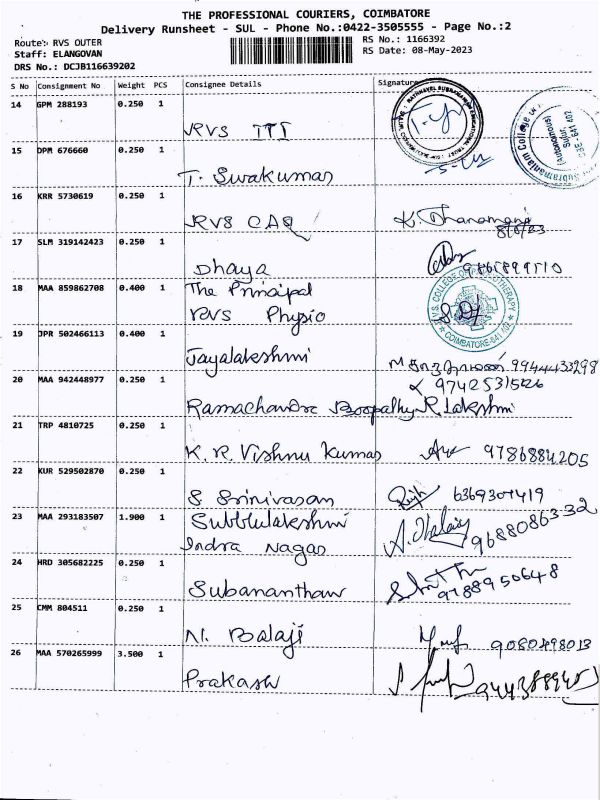 THE PROFESSIONAL COURIERS, COIMBATORE
Delivery Runsheet - SUL - Phone No.:0422-3505555 - Page No.:2
Route: RVS OUTER
RS No.: 1166392
Staff: ELANGOVAN
RS Date: 08-May-2023
DRS No.: DCJB116639202
S No Consignment No Weight PCS Consignee Details Signature
14 GPM 288193 0.250 1
RVS
15 DPM 676660 0.250 1
T. Sivakumar
16 KRR 5730619 0.250 1
RVS K. Thanamani
8/5/23
17 SLM 319142423 0.250 1
Dhaya
18 MAA 859862708 0.400 1 The Principal
RVS Physio
COIMBATORE-641 402
19 JPR 502466113 0.400 1
Jayalakshmi 9944433298
20 MAA 942448977 0.250 1
Ramachandra Boopathy R. Lakshmi
21 TRP 4810725 0.250 1
K. R. Vishnu Kumar 9786884205
22 KUR 529502870 0.250 1
S Srinivasan 6369307419
23 MAA 293183507 1.900 1 Subbulakshmi
Indra Nagar 9688086332
24 HRD 305682225 0.250 1
Subananthan 9788950648
25 CMM 804511 0.250 1
N. Balaji 9080498013
26 MAA 570265999 3.500 1
Prakash